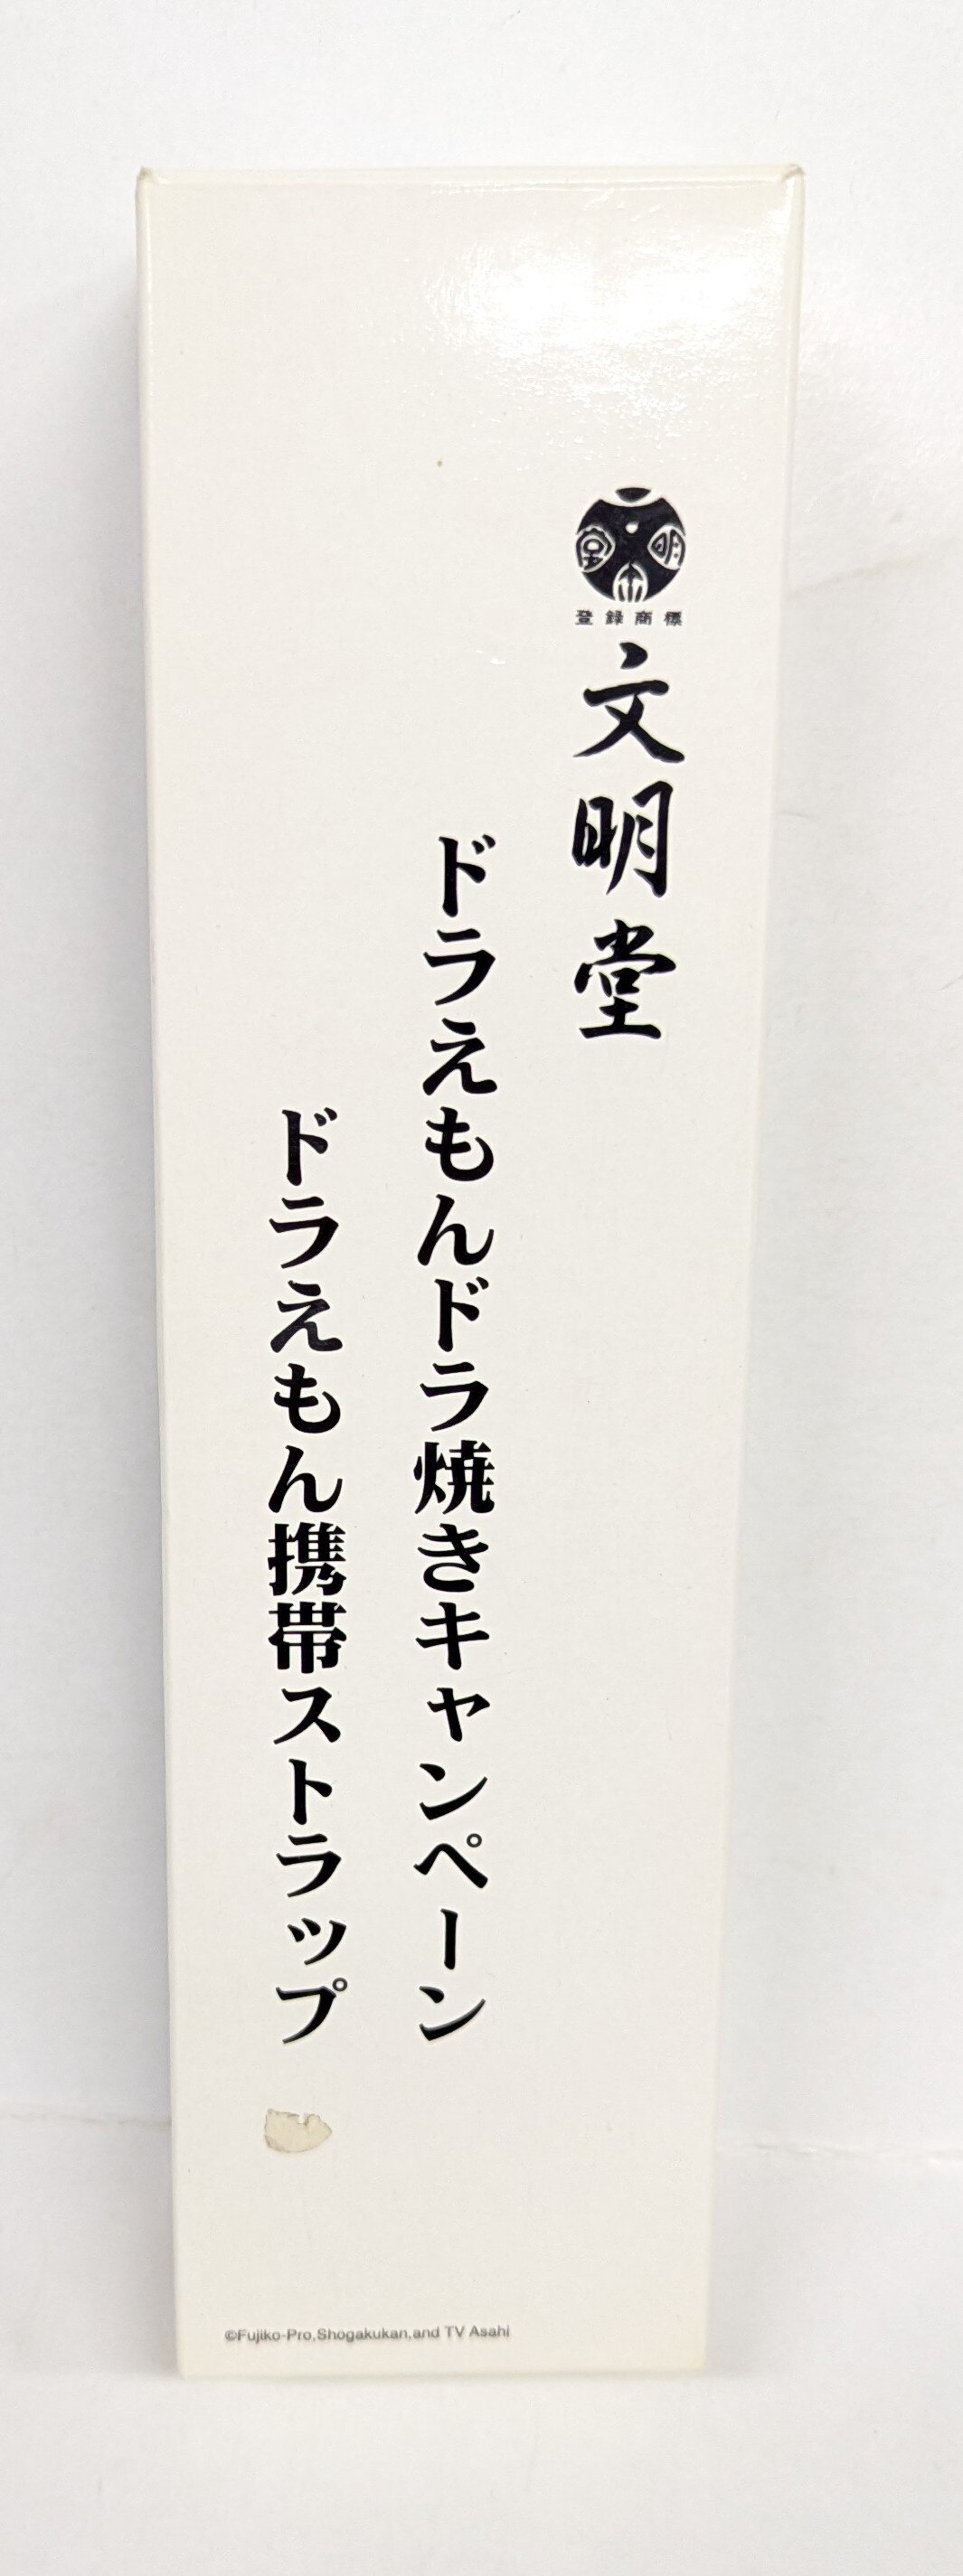 文明堂
登録商標
文明堂
ドラえもんドラ焼きキャンペーン
ドラえもん携帯ストラップ
©Fujiko-Pro,Shogakukan,and TV Asahi